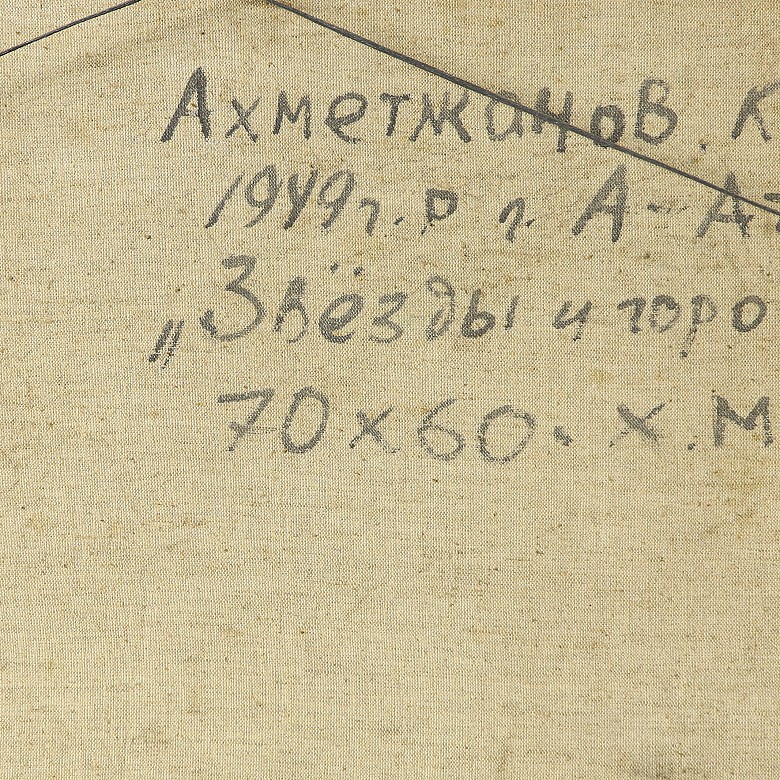 Ахметжанов. К
1949г. р г. А-А
„Звёзды и горо
70х60. х. м